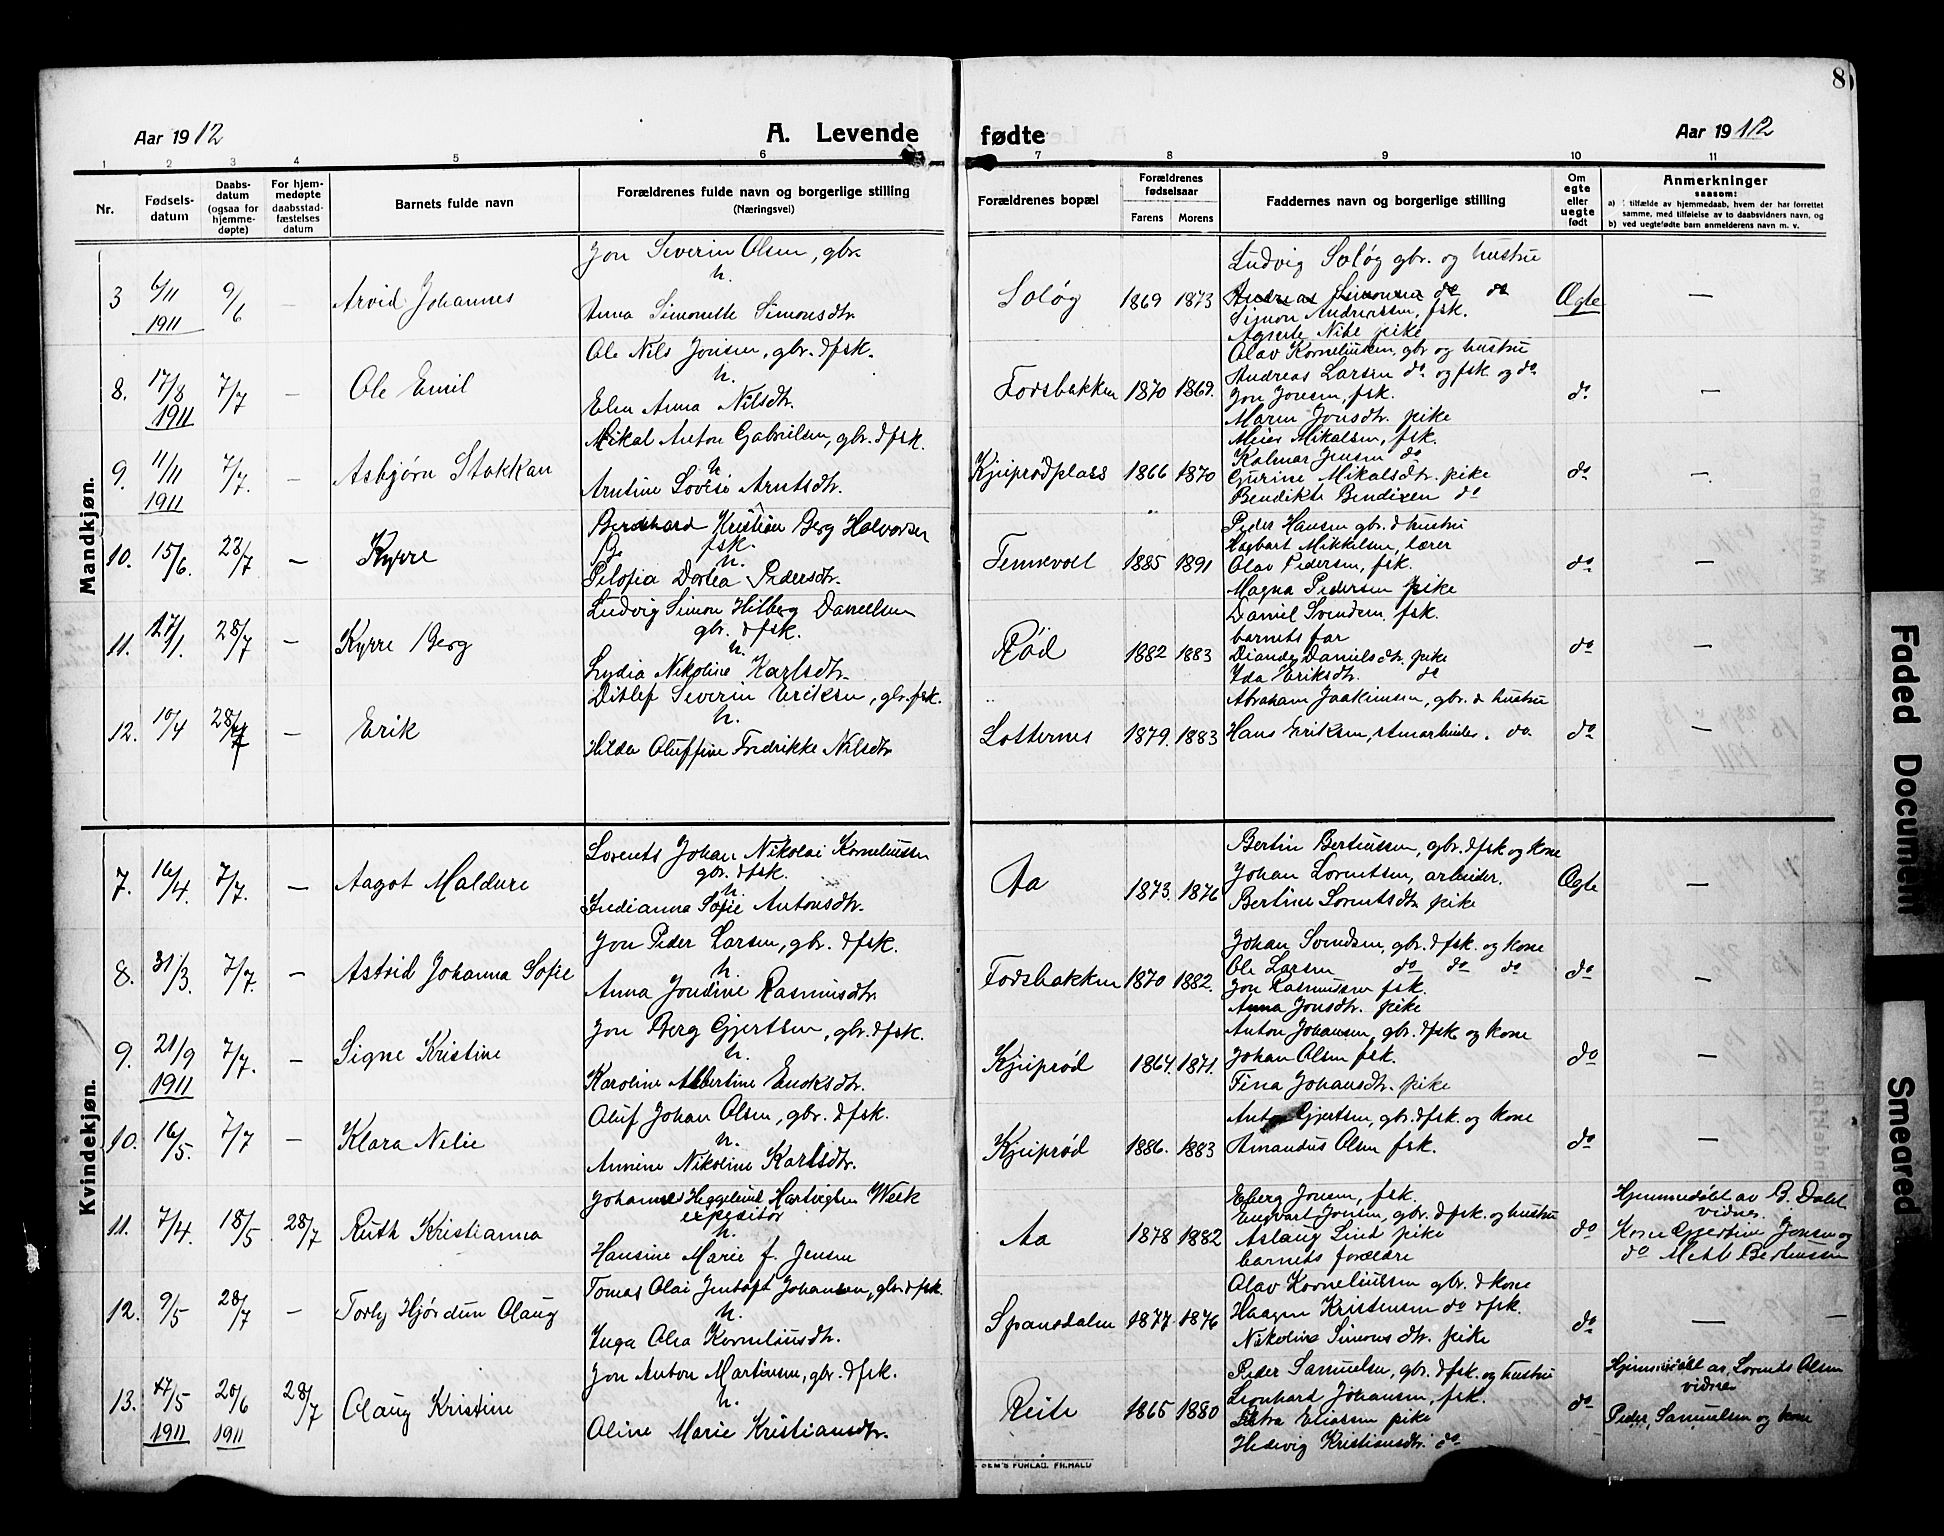 8
Aar 1912
A. Levende fødte
Aar 1912
1 2 3 4 5 6 7 8 9 10 11
Nr.
Fødsels-
datum
Daabs-
datum
(ogsaa for
hjemme-
døpte)
For hjem-
medøpte
daabsstad-
fæstelses
datum
Barnets fulde navn
Forældrenes fulde navn og borgerlige stilling
(Næringsvei)
Forældrenes bopæl
Forældrenes
fødselsaar
Farens Morens
Faddernes navn og borgerlige stilling
Om
egte
eller
uegte
født
Anmerkninger
saasom:
a) I tilfælde av hjemmedaab, hvem der har forrettet
samme, med tilføielse av to daabsvidners navn, og
b) ved uegtefødte barn anmelderens navn m. v.
Mandkjøn.
3 6/11 1911 9/6 — Arvid Johannes
Jon Severin Olsen, gbr.
h.
Anna Simonette Simonsdtr.
Soløg 1869 1873
Ludvig Soløg gbr. og hustru
Andreas Simonsen do do
Simon Andreassen, fsk.
Agnete Nibe pike
Ægte —
8. 17/8 1911 7/7 — Ole Emil
Ole Nils Jonsen, gbr. & fsk.
h.
Elen Anna Nilsdtr.
Fodsbakken 1870 1869.
Olav Korneliussen, gbr og hustru
Andreas Larsen do og fsk og do
Jon Jonsen, fsk.
Maren Jonsdtr. pike
do —
9. 11/11 1911 7/7. — Asbjørn Stokkan
Mikal Anton Gabrielsen, gbr. & fsk.
h
Arntine Lovise Arntsdtr.
Kjuprødplass 1866 1870
Meier Mikalsen, fsk.
Kalmar Jensen do
Gurine Mikalsdtr. pike
Bendikte Bendixen do
do —.
10. 15/6. 28/7 — Kyrre
Bernhard Kristian Berg Halvorsen
fsk.
h.
Pelofia Dortea Pedersdtr.
Tennevoll 1885 1891
Peder Hansen gbr. & hustru
Hagbart Mikkelsen, lærer
Olav Pedersen, fsk.
Magna Pedersen pike
do —
11. 27/1. 28/7 — Kyrre Berg
Ludvig Simon Hilberg Danielsen
gbr. & fsk.
h.
Lydia Nikoline Karlsdtr.
Rød 1882 1883
Daniel Svendsen fsk.
barnets far
Danielsdtr. pike
Ida Eriksdtr. do
do —
12. 10/4 28/7 — Erik
Ditlef Severin Eriksen, gbr. fsk.
h.
Hilda Oluffine Fredrikke Nilsdtr.
Lotternes 1879. 1883
Abraham Joakimsen, gbr. & hustru
Hans Eriksen, do
do —
Kvindekjøn.
7. 16/4. 7/7. — Aagot Maldure
Lorents Johan Nikolai Korneliussen
gbr. & fsk.
h
Indianna Sofie Antonsdtr.
Aa 1873. 1876
Bertin Bertinssen, gbr. & fsk og kone
Johan Lorentsen, arbeider.
Bertine Lorentsdtr. pike
Ægte —
8. 31/3. 7/7. — Astrid Johanna Sofie
Jon Peder Larsen, gbr. & fsk.
h
Anna Jondine Rasmusdtr.
Fodsbakken 1870 1882.
Johan Svendsen, gbr. & fsk. og kone
Ole Larsen do do do
Jon Rasmussen fsk.
Anna Jonsdtr. pike
do —
9. 21/9 1911 7/7. — Signe Kristine
Jon Berg Gjertsen, gbr. & fsk.
h.
Karoline Albertine Enoksdtr.
Kjuprød 1864. 1871.
Anton Johansen, gbr. & fsk og kone
Johan Olsen fsk.
Tina Johansdtr. pike
do —
10. 16/5. 7/7 — Klara Nelie
Oluf Johan Olsen, gbr. & fsk.
h.
Annine Nikoline Karlsdtr.
Kjuprød 1886. 1883
Anton Gjertsen, gbr. & fsk. og kone
Amandus Olsen fsk.
do —
11. 7/4. 18/5 28/7 Ruth Kristianna
Johannes Heggelund Hartvigsen Week
expeditør
h.
Hansine Marie f. Jensen
Aa 1878 1882
Eberg Jonsen, fsk.
Engvart Jonsen, gbr. & fsk. og hustru
Aslaug Lind pike
barnets forældre
do
Hjemmedøbt av B. Dahl
vidner
Kone Gjertine Jonsen og
do Mette Bertinssen
12. 9/5 28/7 — Torly Hjørdun Olaug
Tomas Olai Jentoft Johansen, gbr. & fsk.
h.
Inga Olea Korneliusdtr.
Spansdalen 1877 1876
Olav Korneliussen gbr. & kone
Haagen Kristensen do & fsk.
Nikoline Simonsdtr. pike
do —
13. 17/5 1911 20/6 1911 28/7 Olaug Kristine
Jon Anton Martinsen, gbr. & fsk.
h.
Oline Marie Kristiansdtr.
Reite 1865 1880
Peder Samuelsen, gbr. & fsk. og hustru
Leonhart Johansen, fsk.
Petra Eliassen pike
Hedevig Kristiansdtr. do
do
Hjemmedøbt av Lorents Olsen
vidner
Peder Samuelsen og kone
SEM'S FORLAG. FR.HALD
Faded Document
Smeared